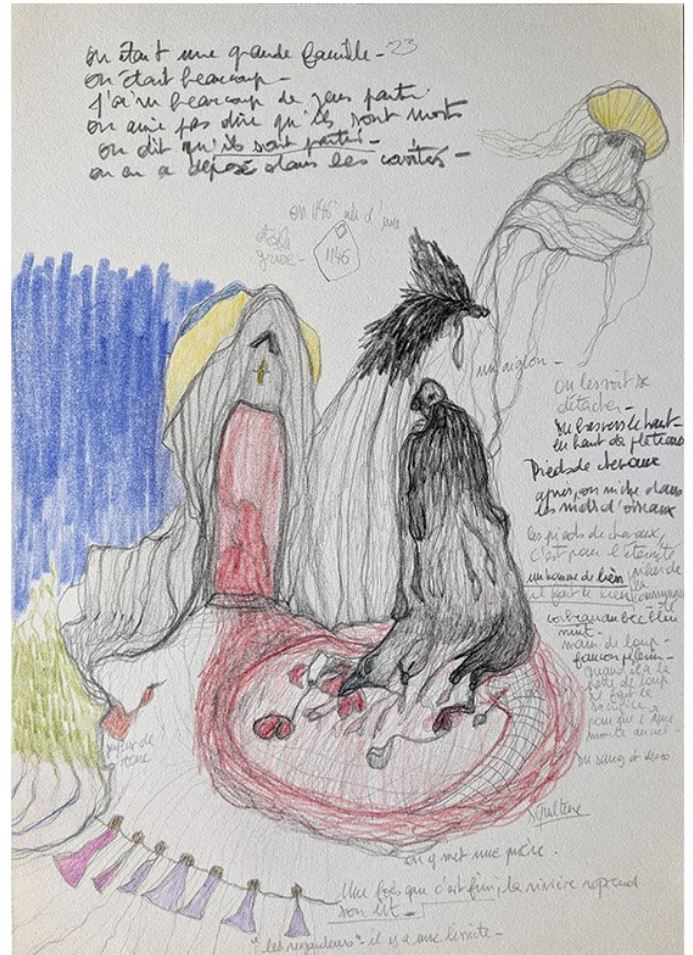 on était une grande famille - 23
on était beaucoup -
j'ai vu beaucoup de gens partir
on aime pas dire qu'ils sont morts
on dit qu'ils sont partis -
on en a déposé dans les cavités -
on 1146 née d'une
étoile
grise -
1146
un aiglon -
on les voit se
détacher -
du bas vers le haut -
en haut de plateau
Pieds de chevaux
après, on niche dans
les nids d'oiseaux
les pieds de chevaux,
c'est pour l'éternité
un homme de bien
il fait le bien
corbeau au bec bleu
nuit -
main de loup -
faucon pèlerin -
quand il a la
patte de loup
il fait le
sacrifice
pour que l'âme
monte au ciel -
du sang et des os
sépulture
on y met une prière.
Une fois que c'est fini, la rivière reprend
son lit -
"les regardeurs" - il y a une limite -